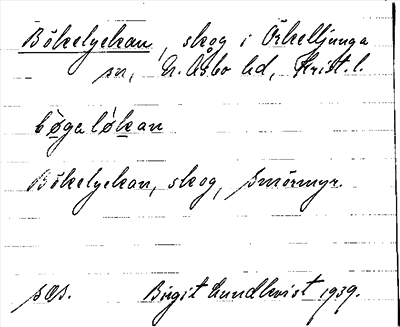 Bökelyckan, skog i Örkelljunga
sn, N. Åsbo hd, Krist. l.
bøgaløkan
Bökelyckan, skog, Smörmyr.
sas.
Birgit Lundkvist 1939.